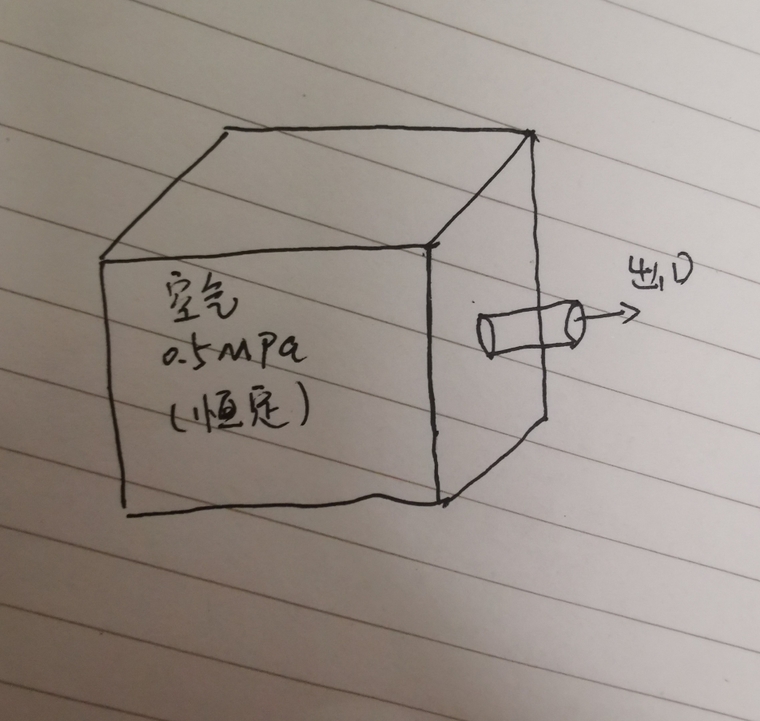 空气
0.5MPa
(恒定)
出口